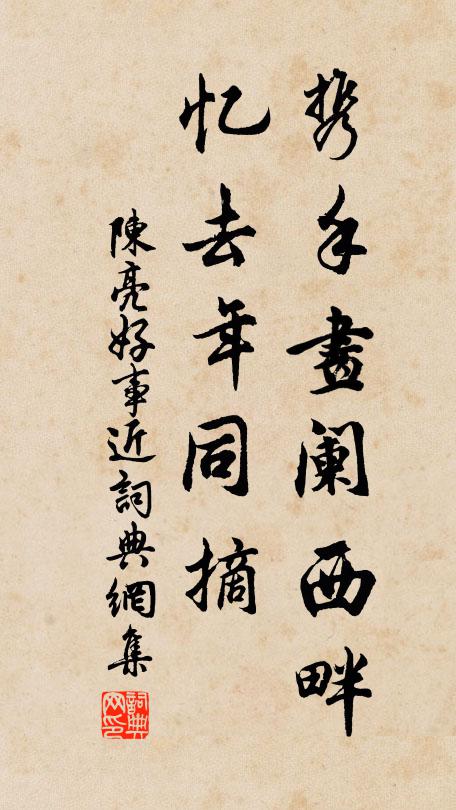 携手畫阑西畔
忆去年同摘
陳亮好事近詞典網集
詞典网印